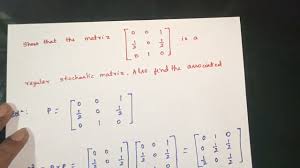 Show that the matrix [0 0 1
1/2 0 1/2
0 1 0] is a
regular stochastic matrix. Also find the associated
P = [0 0 1
1/2 0 1/2
0 1 0]
P×P = [0 0 1
1/2 0 1/2
0 1 0] [0 0 1
1/2 0 1/2
0 1 0] = [0 1 0
0 1/2 1/2
1/2 0 1/2]